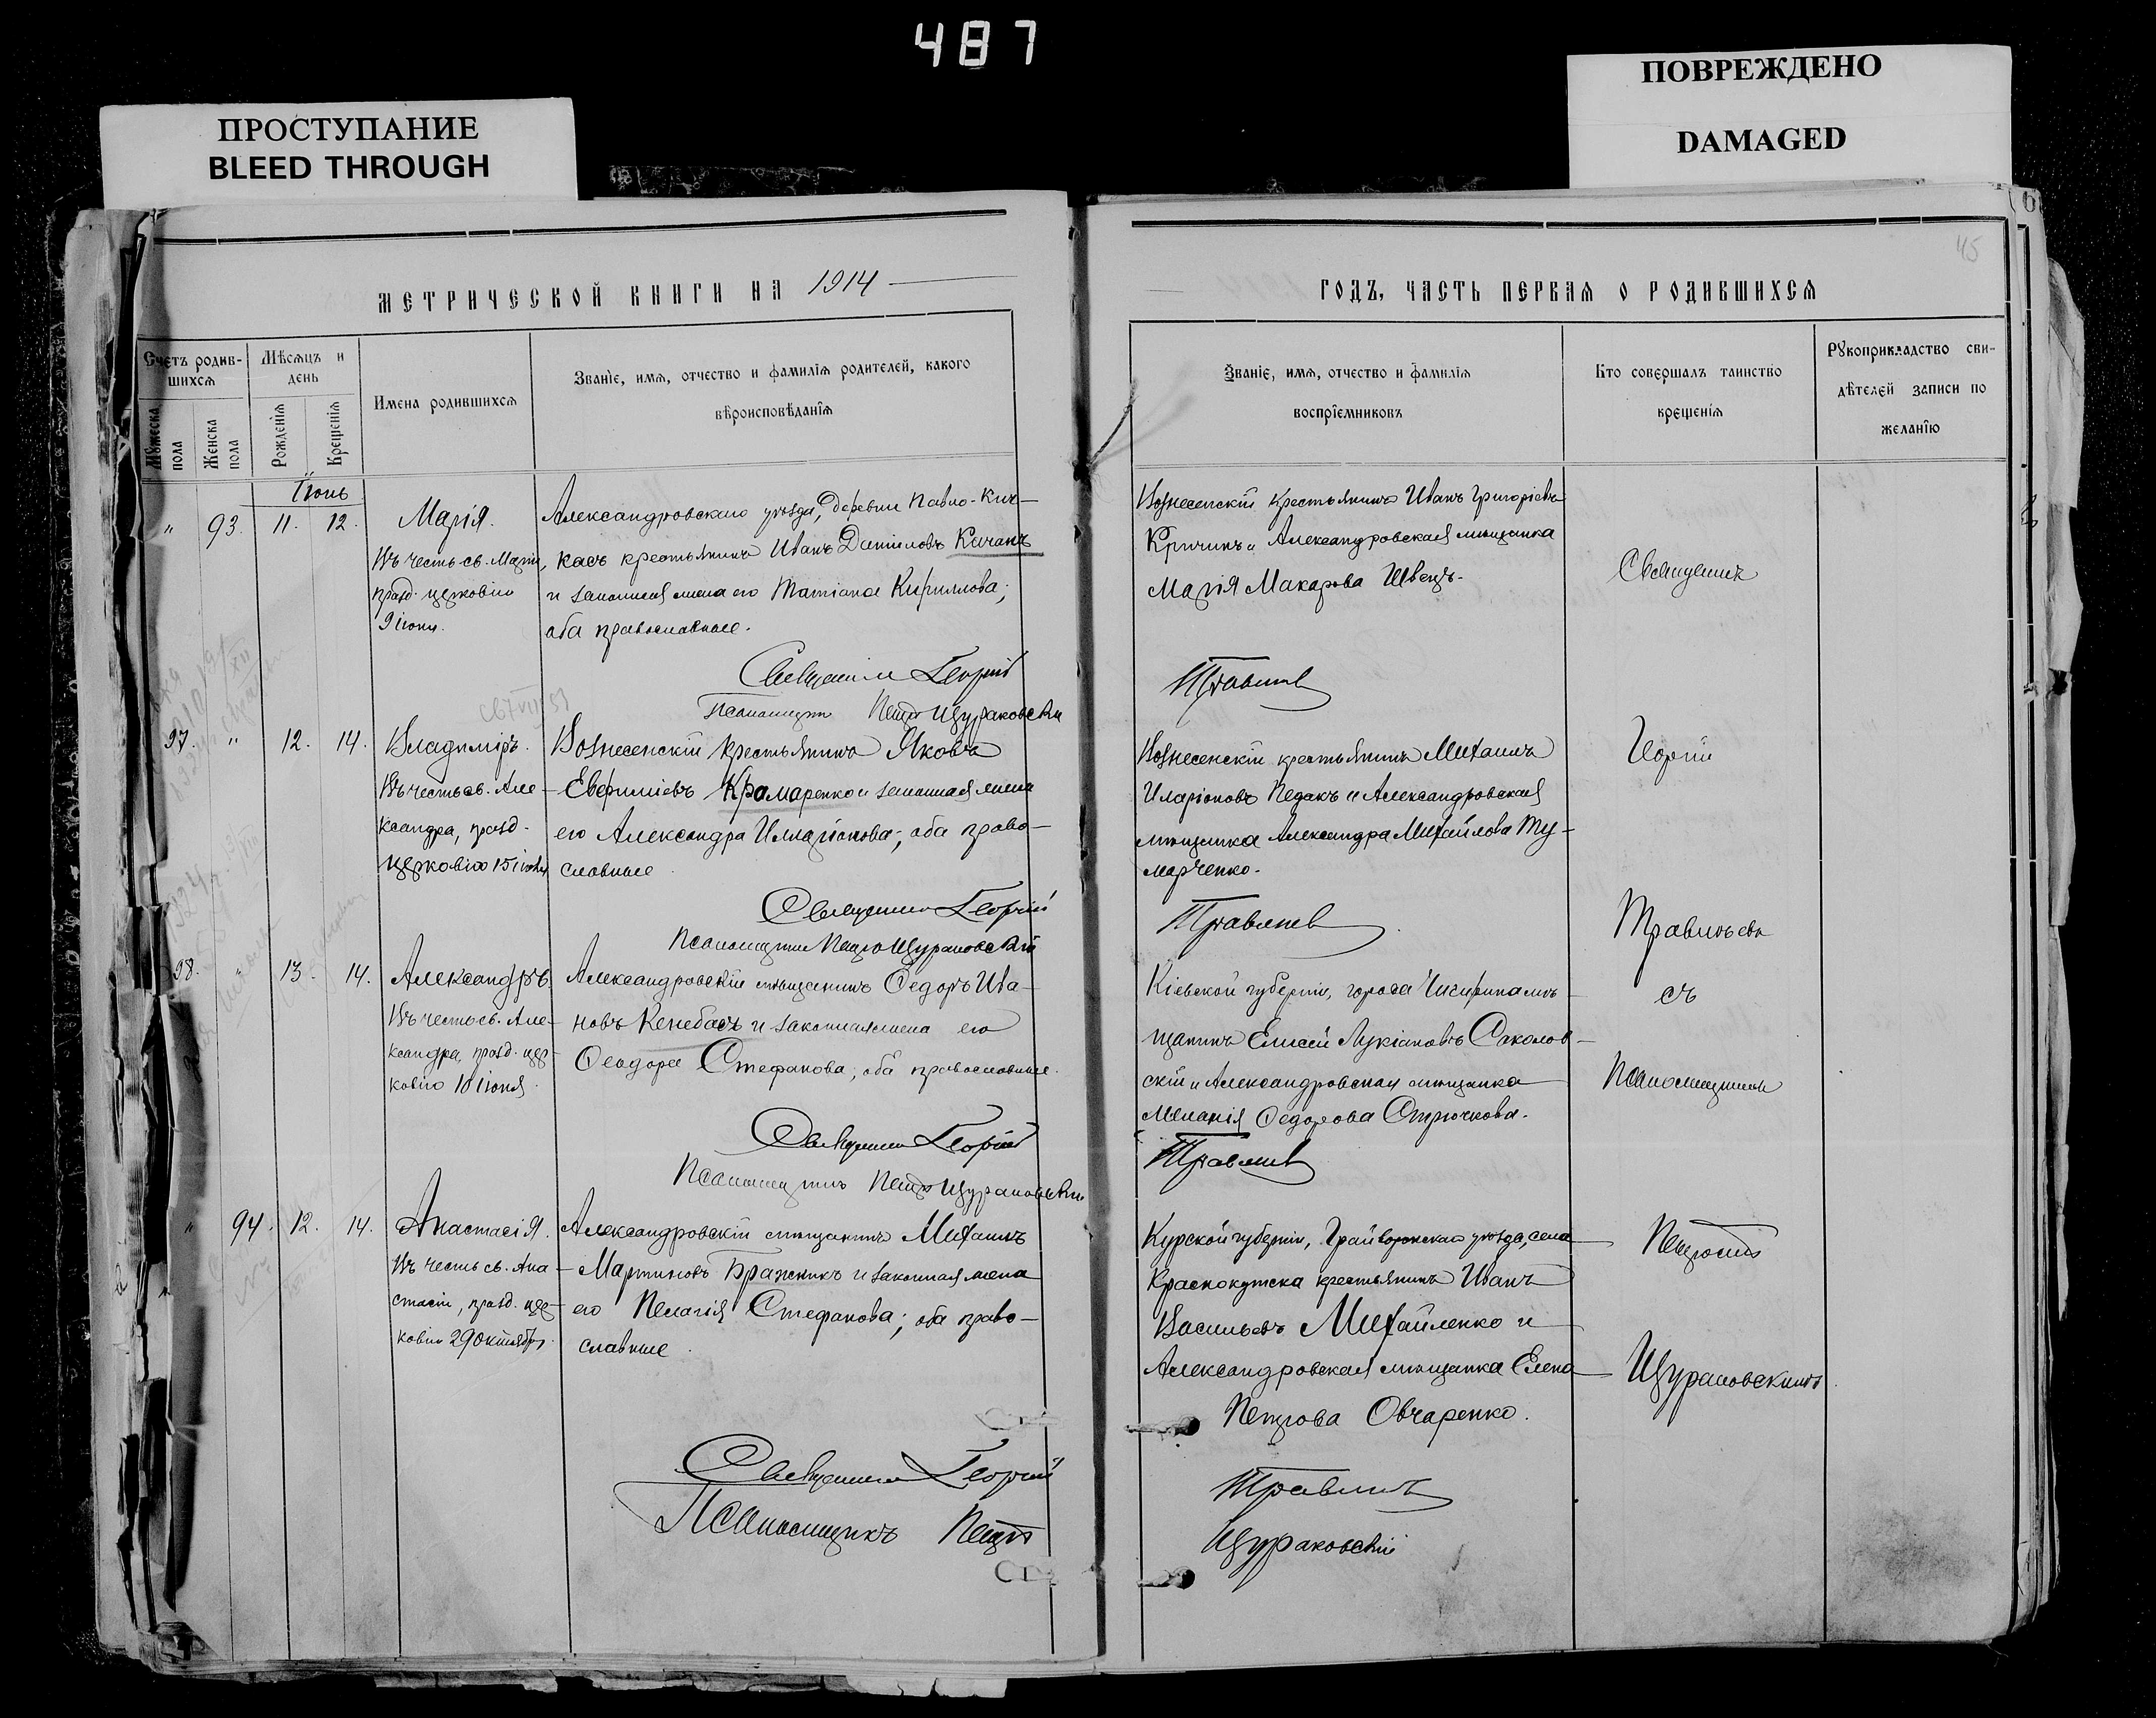 487
ПРОСТУПАНИЕ
BLEED THROUGH
ПОВРЕЖДЕНО
DAMAGED
45
МЕТРИЧЕСКОЙ КНИГИ НА 1914
ГОДЪ, ЧАСТЬ ПЕРВАЯ О РОДИВШИХСЯ
Счетъ родив-
шихся
Мужеска пола
Женска пола
Мѣсяцъ и
день
Рожденія
Крещенія
Имена родившихся
Званіе, имя, отчество и фамилія родителей, какого
вѣроисповѣданія
Званіе, имя, отчество и фамилія
воспріемниковъ
Кто совершалъ таинство
крещенія
Рукоприкладство сви-
дѣтелей записи по
желанію
Іюнь
" 93. 11. 12.
Марія.
Въ честь св. Маріи,
празд. церковію
9 іюня.
Александровскаго уѣзда, деревни Павло-Кич-
касъ крестьянинъ Иванъ Даніиловъ Качанъ
и законная жена его Татіана Кириллова;
оба православные.
Священникъ Георгій
Псаломщикъ Петръ Щураковскій
Вознесенскій крестьянинъ Иванъ Григоріевъ
Кричинъ и Александровская мѣщанка
Марія Макарова Швецъ.
Травинъ
97. " 12. 14.
Владиміръ.
Въ честь св. Але-
ксандра, празд.
церковію 15 іюля
Вознесенскій крестьянинъ Яковъ
Евфиміевъ Крамаренко и законная жена
его Александра Илларіонова; оба право-
славные.
Священникъ Георгій
Псаломщикъ Петръ Щураковскій
Вознесенскій крестьянинъ Михаилъ
Иларіоновъ Педакъ и Александровская
мѣщанка Александра Михайлова Ту-
марченко.
Травинъ
98. " 13. 14.
Александръ.
Въ честь св. Але-
ксандра, празд. цер-
ковію 10 іюня.
Александровскій мѣщанинъ Ѳедоръ Ива-
новъ Кенебасъ и законная жена его
Ѳеодора Стефанова; оба православные.
Священникъ Георгій
Псаломщикъ Петръ Щураковскій
Кіевской губерніи, города Чигирина мѣ-
щанинъ Елисей Лукіановъ Саколов-
скій и Александровская мѣщанка
Меланія Ѳедорова Стрючкова.
Травинъ
" 94. 12. 14.
Анастасія.
Въ честь св. Ана-
стасіи, празд. цер-
ковію 29 октября.
Александровскій мѣщанинъ Михаилъ
Мартиновъ Бражникъ и законная жена
его Пелагія Стефанова; оба право-
славные.
Священникъ Георгій
Псаломщикъ Петръ
Курской губерніи, Грайворонскаго уѣзда, села
Краснокутска крестьянинъ Иванъ
Васильевъ Михайленко и
Александровская мѣщанка Елена
Петрова Овчаренко.
Травинъ
Щураковскій
Священникъ
Георгій
съ
Псаломщикомъ
Петромъ
Щураковскимъ.